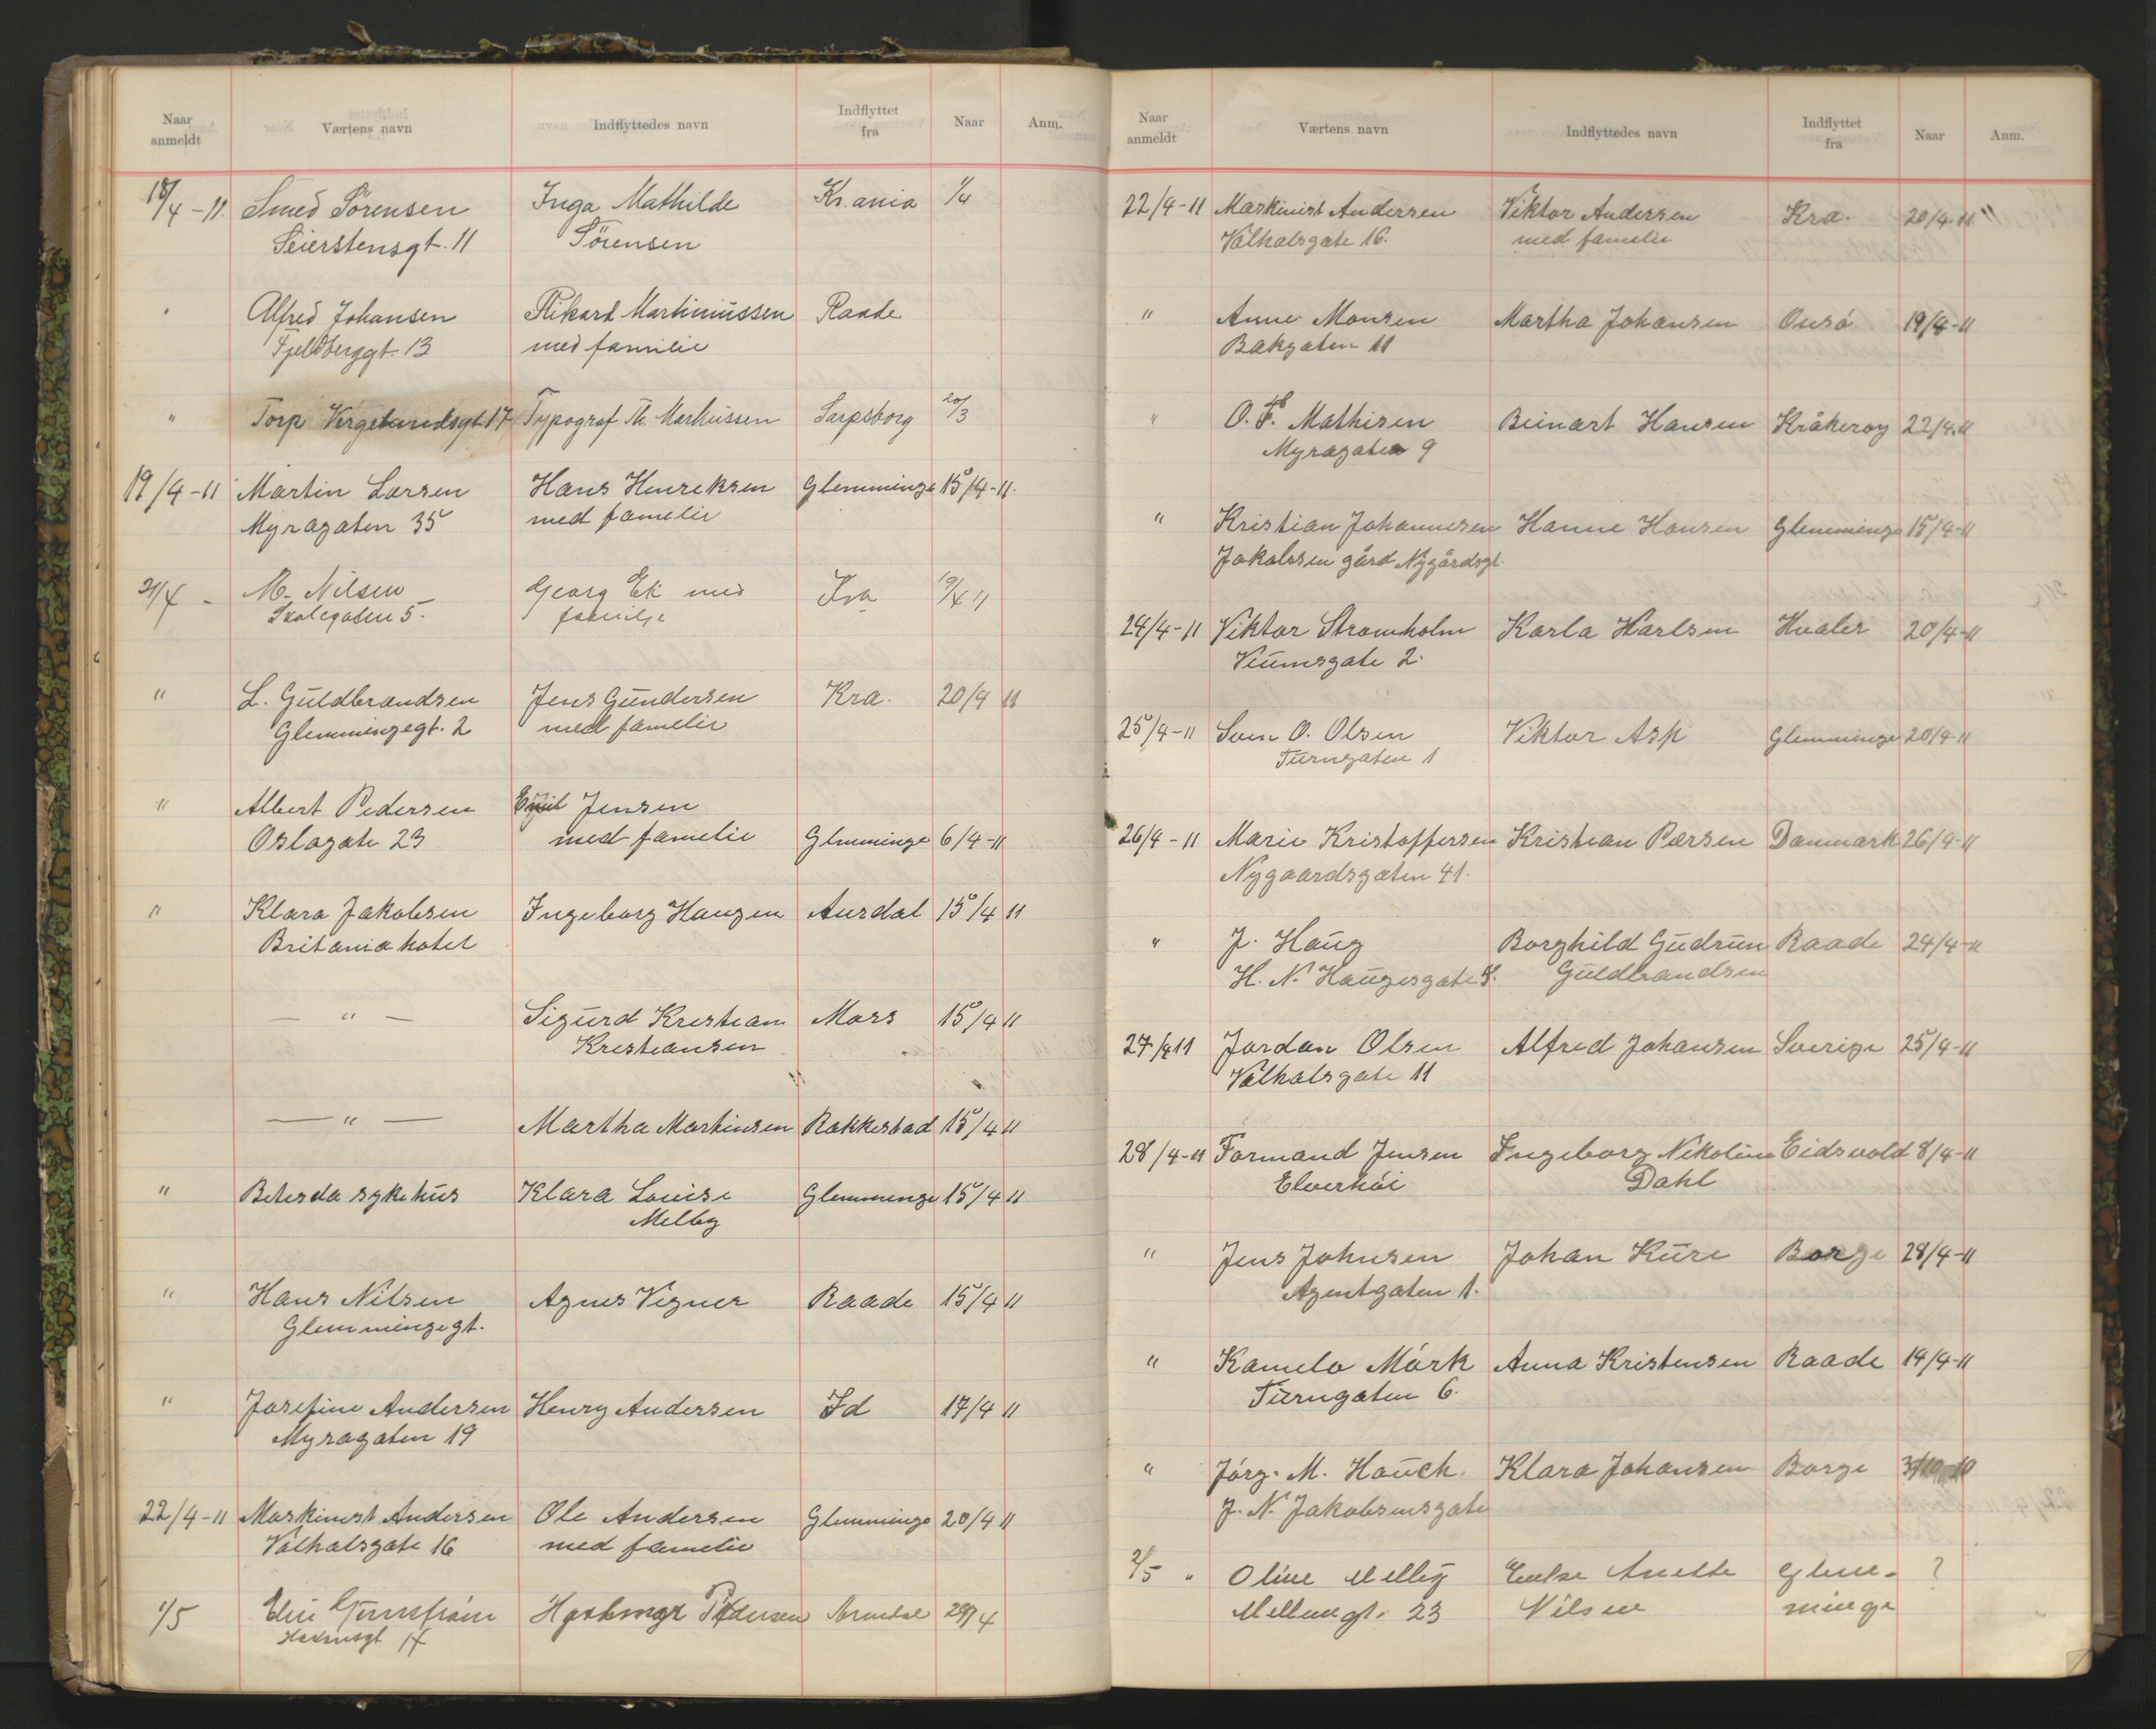 Naar anmeldt Værtens navn Indflyttedes navn Indflyttet fra Naar Anm.
18/4-11. Smed Sörensen Inga Mathilde Kr.ania 1/4
Seierstensgt. 11 Sörensen
" Alfred Johansen Rikard Martiniussen Raade
Fjeldberggt. 13 med familie
" Torp Vergelandsgt 17 Typograf Th. Markussen Sarpsborg 20/3
19/4-11 Martin Larsen Hans Henreksen Glemminge 15/4-11.
Myragaten 35 med famelie
21/4 - M. Nilsen Georg Ek med Kra 19/4 11
Skolegaten 5. familje
" L. Guldbrandsen Jens Gundersen Kra. 20/4 11
Glemmingegt. 2 med famelie
" Albert Pedersen Emil Jensen
Oslogate 23 med famelie Glemminge 6/4-11
" Klara Jakobsen Ingeborg Haugen Aurdal 15/4 11
Britania hotel
— " — Sigurd Kristian Moss 15/4 11
Kristiansen
— " — Martha Martinsen Rakkestad 15/4 11
" Betesda sykehus Klara Louise Glemminge 15/4 11
Melby
" Hans Nilsen Agnes Vegner Raade 15/4 11
Glemmingegt.
" Josefine Andersen Henry Andersen Id 17/4 11
Myragaten 19
22/4-11 Maskinist Andersen Ole Andersen Glemminge 20/4 11
Valhalsgate 16 med famelie
1/5 Pedersen Arendal 29/4
17
Naar anmeldt Værtens navn Indflyttedes navn Indflyttet fra Naar Anm.
22/4-11 Maskinist Andersen Viktor Andersen Kra. 20/4-11 "
Valhalsgate 16. med famelie
" Anne Monsen Martha Johansen Onsö 19/4-11
Bakgaten 11
" O. F. Mathisen Beinart Hansen Kråkeroy 22/4-11
Myragaten 9
" Kristian Johannesen Hanne Hansen Glemminge 15/4-11
Jakobsen gård Nygårdsgt.
24/4-11 Viktor Stromholm Karla Karlsen Hvaler 20/4-11
Veumsgate 2.
25/4-11 Sven O. Olsen Viktor Asp Glemminge 20/4-11
Turngaten 1
26/4-11 Marie Kristoffersen Kristian Pærsen Danmark 26/4-11
Nygaardsgaten 41.
" J. Haug Borghild Gudrun Raade 24/4-11
H. N. Haugesgate Guldbrandsen
27/4 11 Jordan Olsen Alfred Johansen Sverige 25/4-11
Valhalsgate 11
28/4-11 Formand Jensen Ingeborg Nikoline Eidsvold 8/4-11
Elverhöi Dahl
" Jens Johnsen Johan Kure Borge 28/4-11
Agentgaten 1.
" Kamelo Mörk Anna Kristensen Raade 14/4-11
Turngaten 6.
" Jörg. M. Hauch. Klara Johansen Borge
J. N. Jakobsensgate
2/5 " Oline Melby Anette Glem- ?
Mellumgt. 23 Nilsen minge